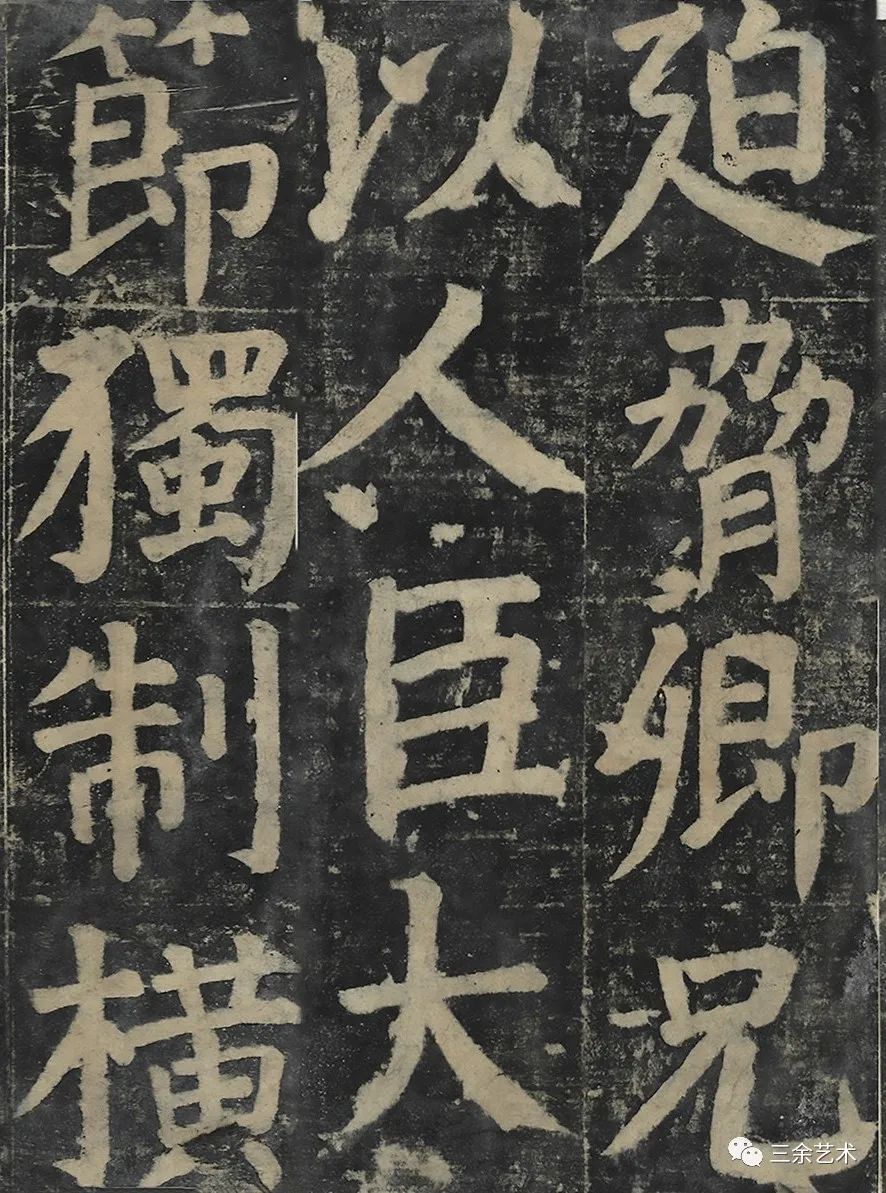 迫脅卿兄
以人臣大
節獨制橫
三余艺术